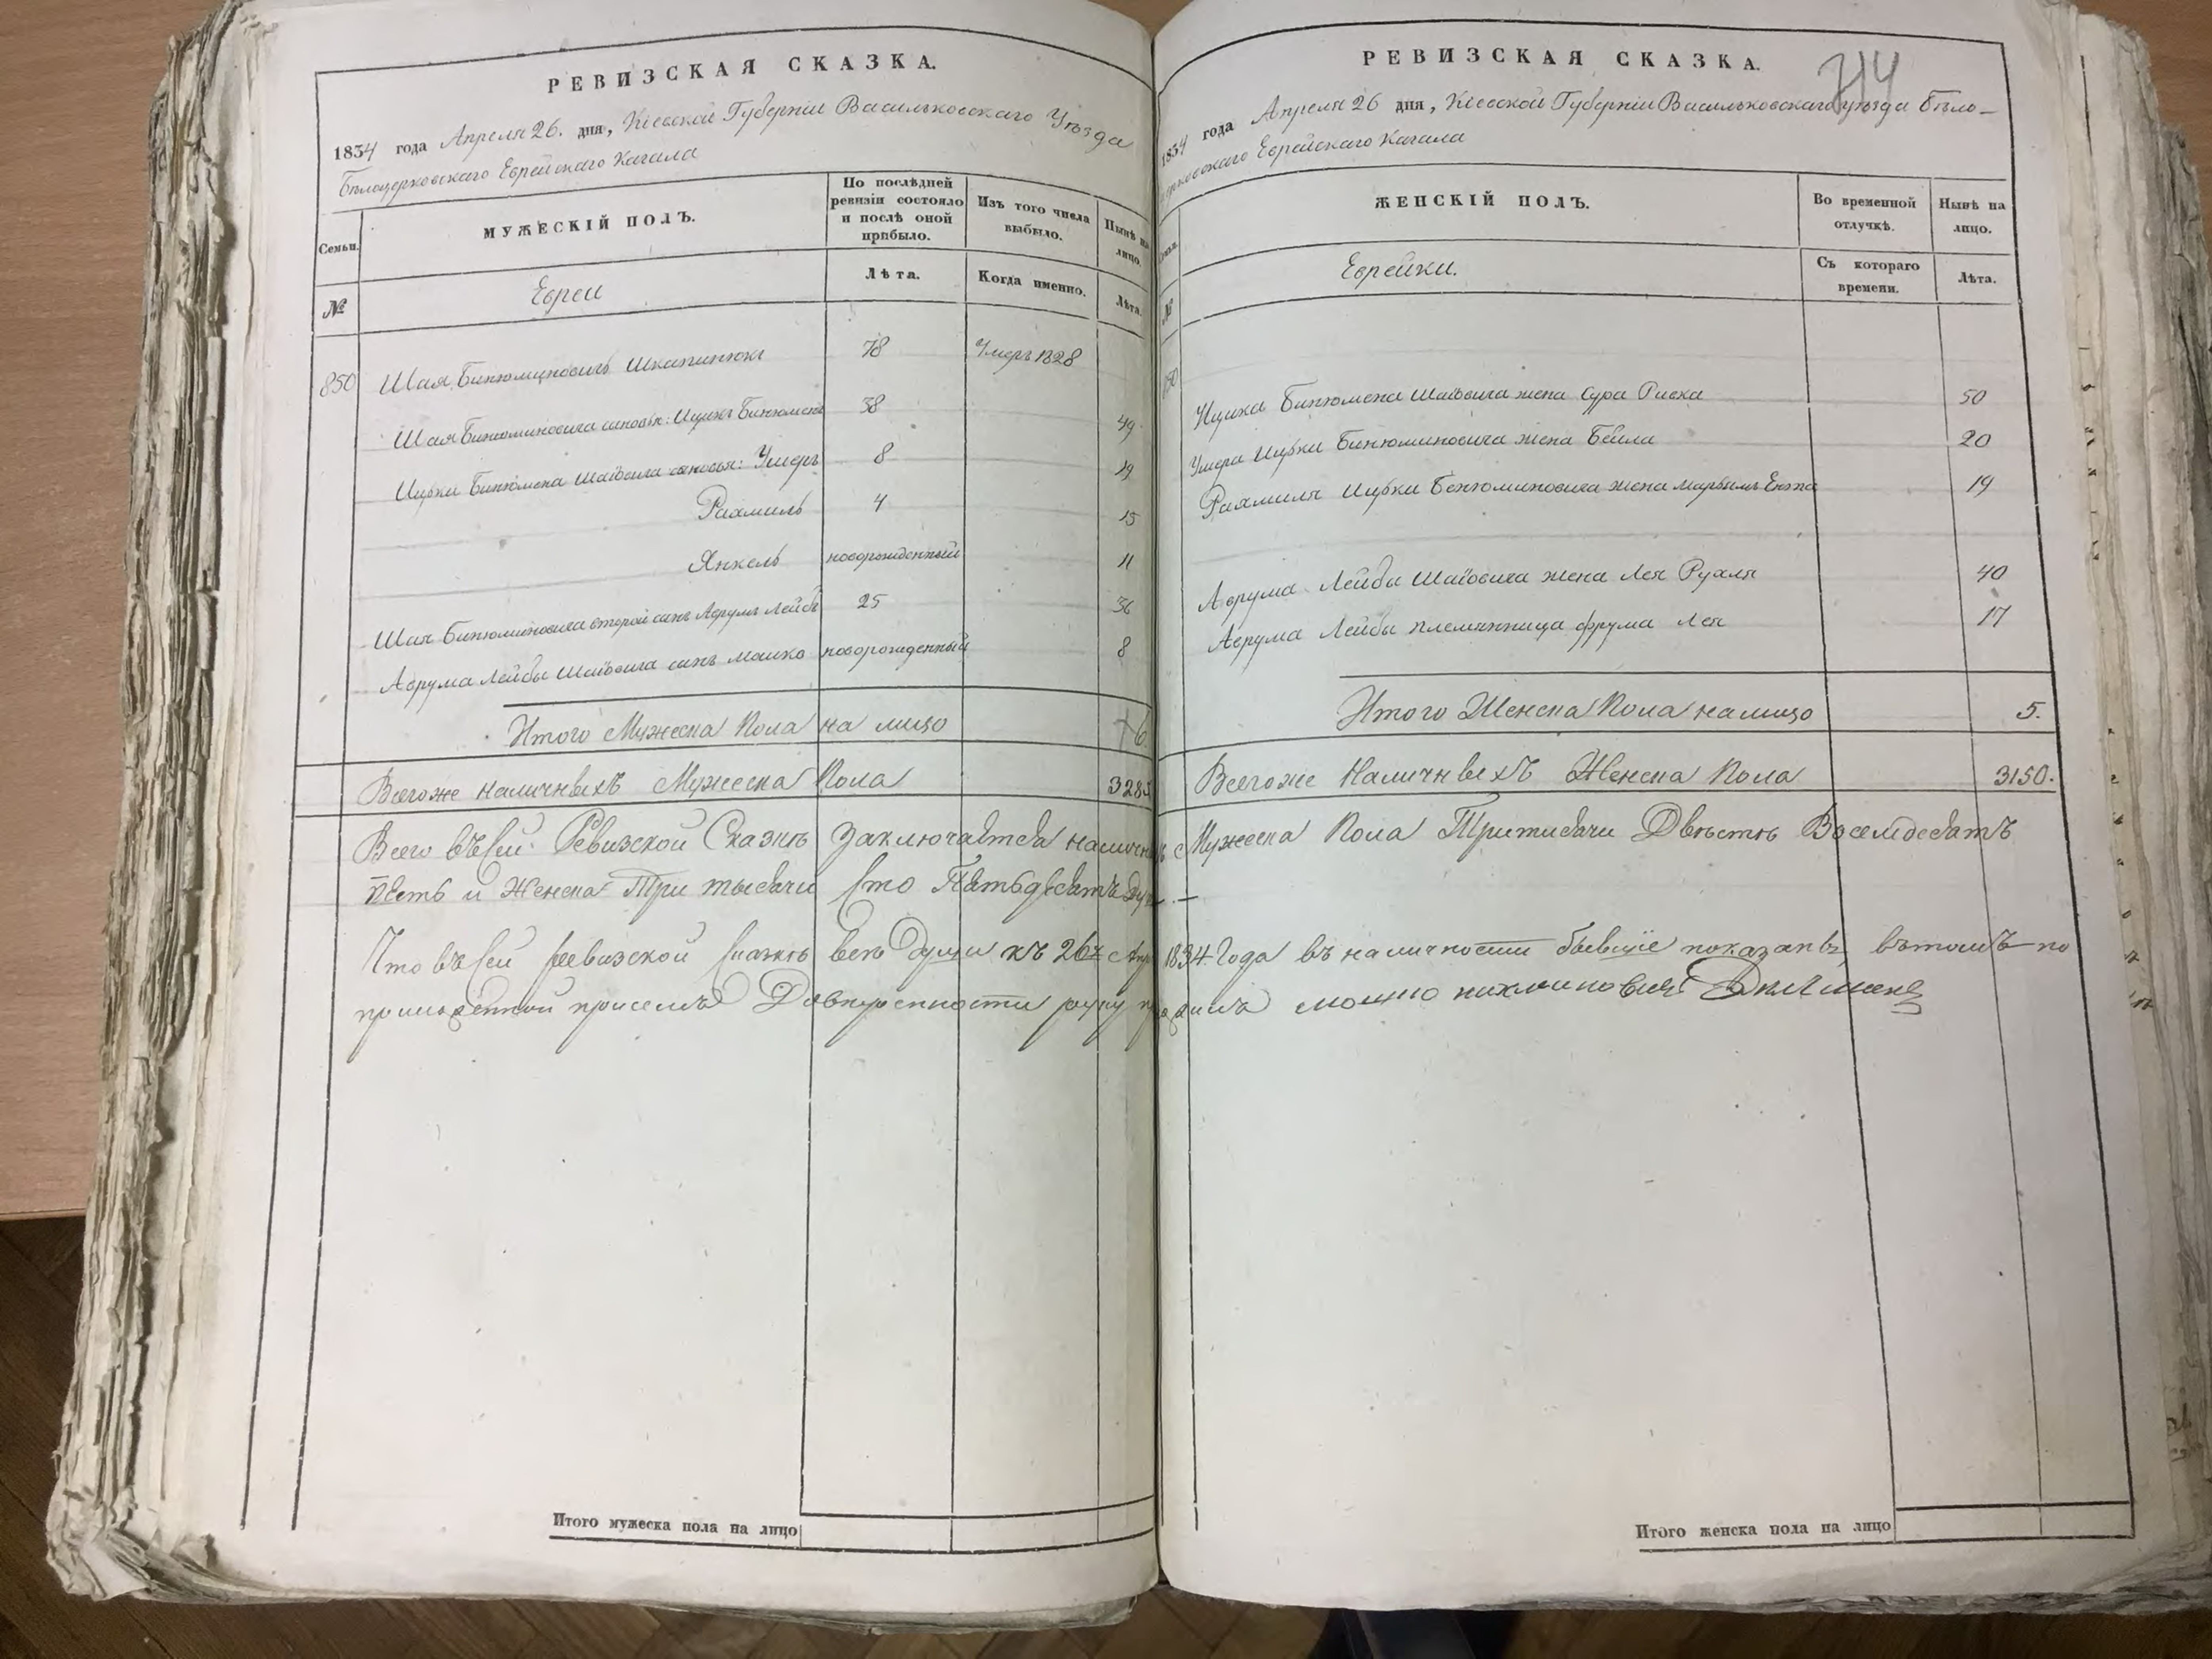 РЕВИЗСКАЯ СКАЗКА.
1834 года Апреля 26. дня, Кіевской Губерніи Васильковскаго Уѣзда
Бѣлоцерковскаго Еврейскаго Кагала
Семьи.
МУЖЕСКІЙ ПОЛЪ.
По послѣдней ревизіи состояло и послѣ оной прибыло.
Изъ того числа выбыло.
Нынѣ на лицо.
№
Евреи
Лѣта.
Когда именно.
Лѣта.
850 Шая Бинюминовичъ Шкапинюкъ 78 Умеръ 1828
Шая Бинюминовича сыновья: Ицикъ Бинюминъ 38 49
Ицьки Бинюмена Шаіовича сыновья: Умеръ 8 19
Рахмиль 4 15
Янкель новорожденный 11
Шая Бинюминовича второй сынъ Аврумъ Лейба 25 36
Аврума Лейбы Шаіовича сынъ Мошко новорожденный 8
Итого Мужеска Пола на лицо 6
Всего же наличныхъ Мужеска Пола 3285
Всего въ сей Ревизской Сказкѣ Заключается наличныхъ
пять и Женска Три тысячи Сто Пятьдесятъ Душъ.
Что въ сей ревизской сказкѣ всѣ Души къ 26 Апр
Итого мужеска пола на лицо
РЕВИЗСКАЯ СКАЗКА.
744
1834 года Апреля 26 дня, Кіевской Губерніи Васильковскаго уѣзда Бѣло-
церковскаго Еврейскаго Кагала
ЖЕНСКІЙ ПОЛЪ.
Во временной отлучкѣ.
Нынѣ на лицо.
№
Еврейки.
Съ котораго времени.
Лѣта.
850
Ицика Бинюмена Шаіовича жена Сура Ривка 50
Умера Ицьки Бинюминовича жена Бейла 20
Рахмиля Ицьки Бенюминовича жена Марьямъ Ента 19
Аврума Лейбы Шаіовича жена Лея Рухля 40
Аврума Лейбы племянница Фрума Лея 17
Итого Женска Пола на лицо 5.
Всего же Наличныхъ Женска Пола 3150.
Мужеска Пола Три тисячи Двѣстѣ Восемдесатъ
1834 Года въ наличности бывшіе показаны, въ томъ по
Итого женска пола на лицо